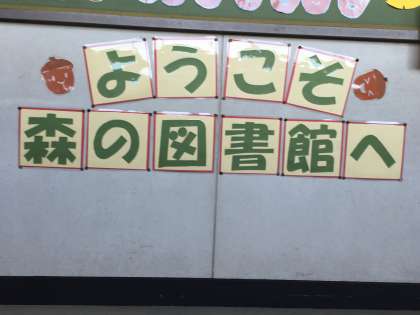 ようこそ
森の図書館へ